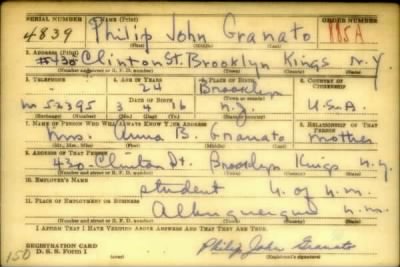 SERIAL NUMBER 1. NAME (Print) ORDER NUMBER
4839 Philip John Granato 115A
(First) (Middle) (Last)
2. ADDRESS (Print)
#430 Clinton St. Brooklyn Kings N.Y.
(Number and street or R. F. D. number) (Town) (County) (State)
3. TELEPHONE 4. AGE IN YEARS 5. PLACE OF BIRTH 6. COUNTRY OF CITIZENSHIP
24 Brooklyn
DATE OF BIRTH (Town or county)
M 52395 3 4 16 N.Y. U.S.A.
(Exchange) (Number) (Mo.) (Day) (Yr.) (State or country)
7. NAME OF PERSON WHO WILL ALWAYS KNOW YOUR ADDRESS 8. RELATIONSHIP OF THAT PERSON
Mrs. Anna B. Granato mother
(Mr., Mrs., Miss) (First) (Middle) (Last)
9. ADDRESS OF THAT PERSON
430 Clinton St. Brooklyn Kings N.Y.
(Number and street or R. F. D. number) (Town) (County) (State)
10. EMPLOYER'S NAME
student U. of N.M.
11. PLACE OF EMPLOYMENT OR BUSINESS
Albuquerque N.M.
(Number and street or R. F. D. number) (Town) (County) (State)
I AFFIRM THAT I HAVE VERIFIED ABOVE ANSWERS AND THAT THEY ARE TRUE.
REGISTRATION CARD
D. S. S. Form 1 Philip John Granato
150 (Registrant's signature)